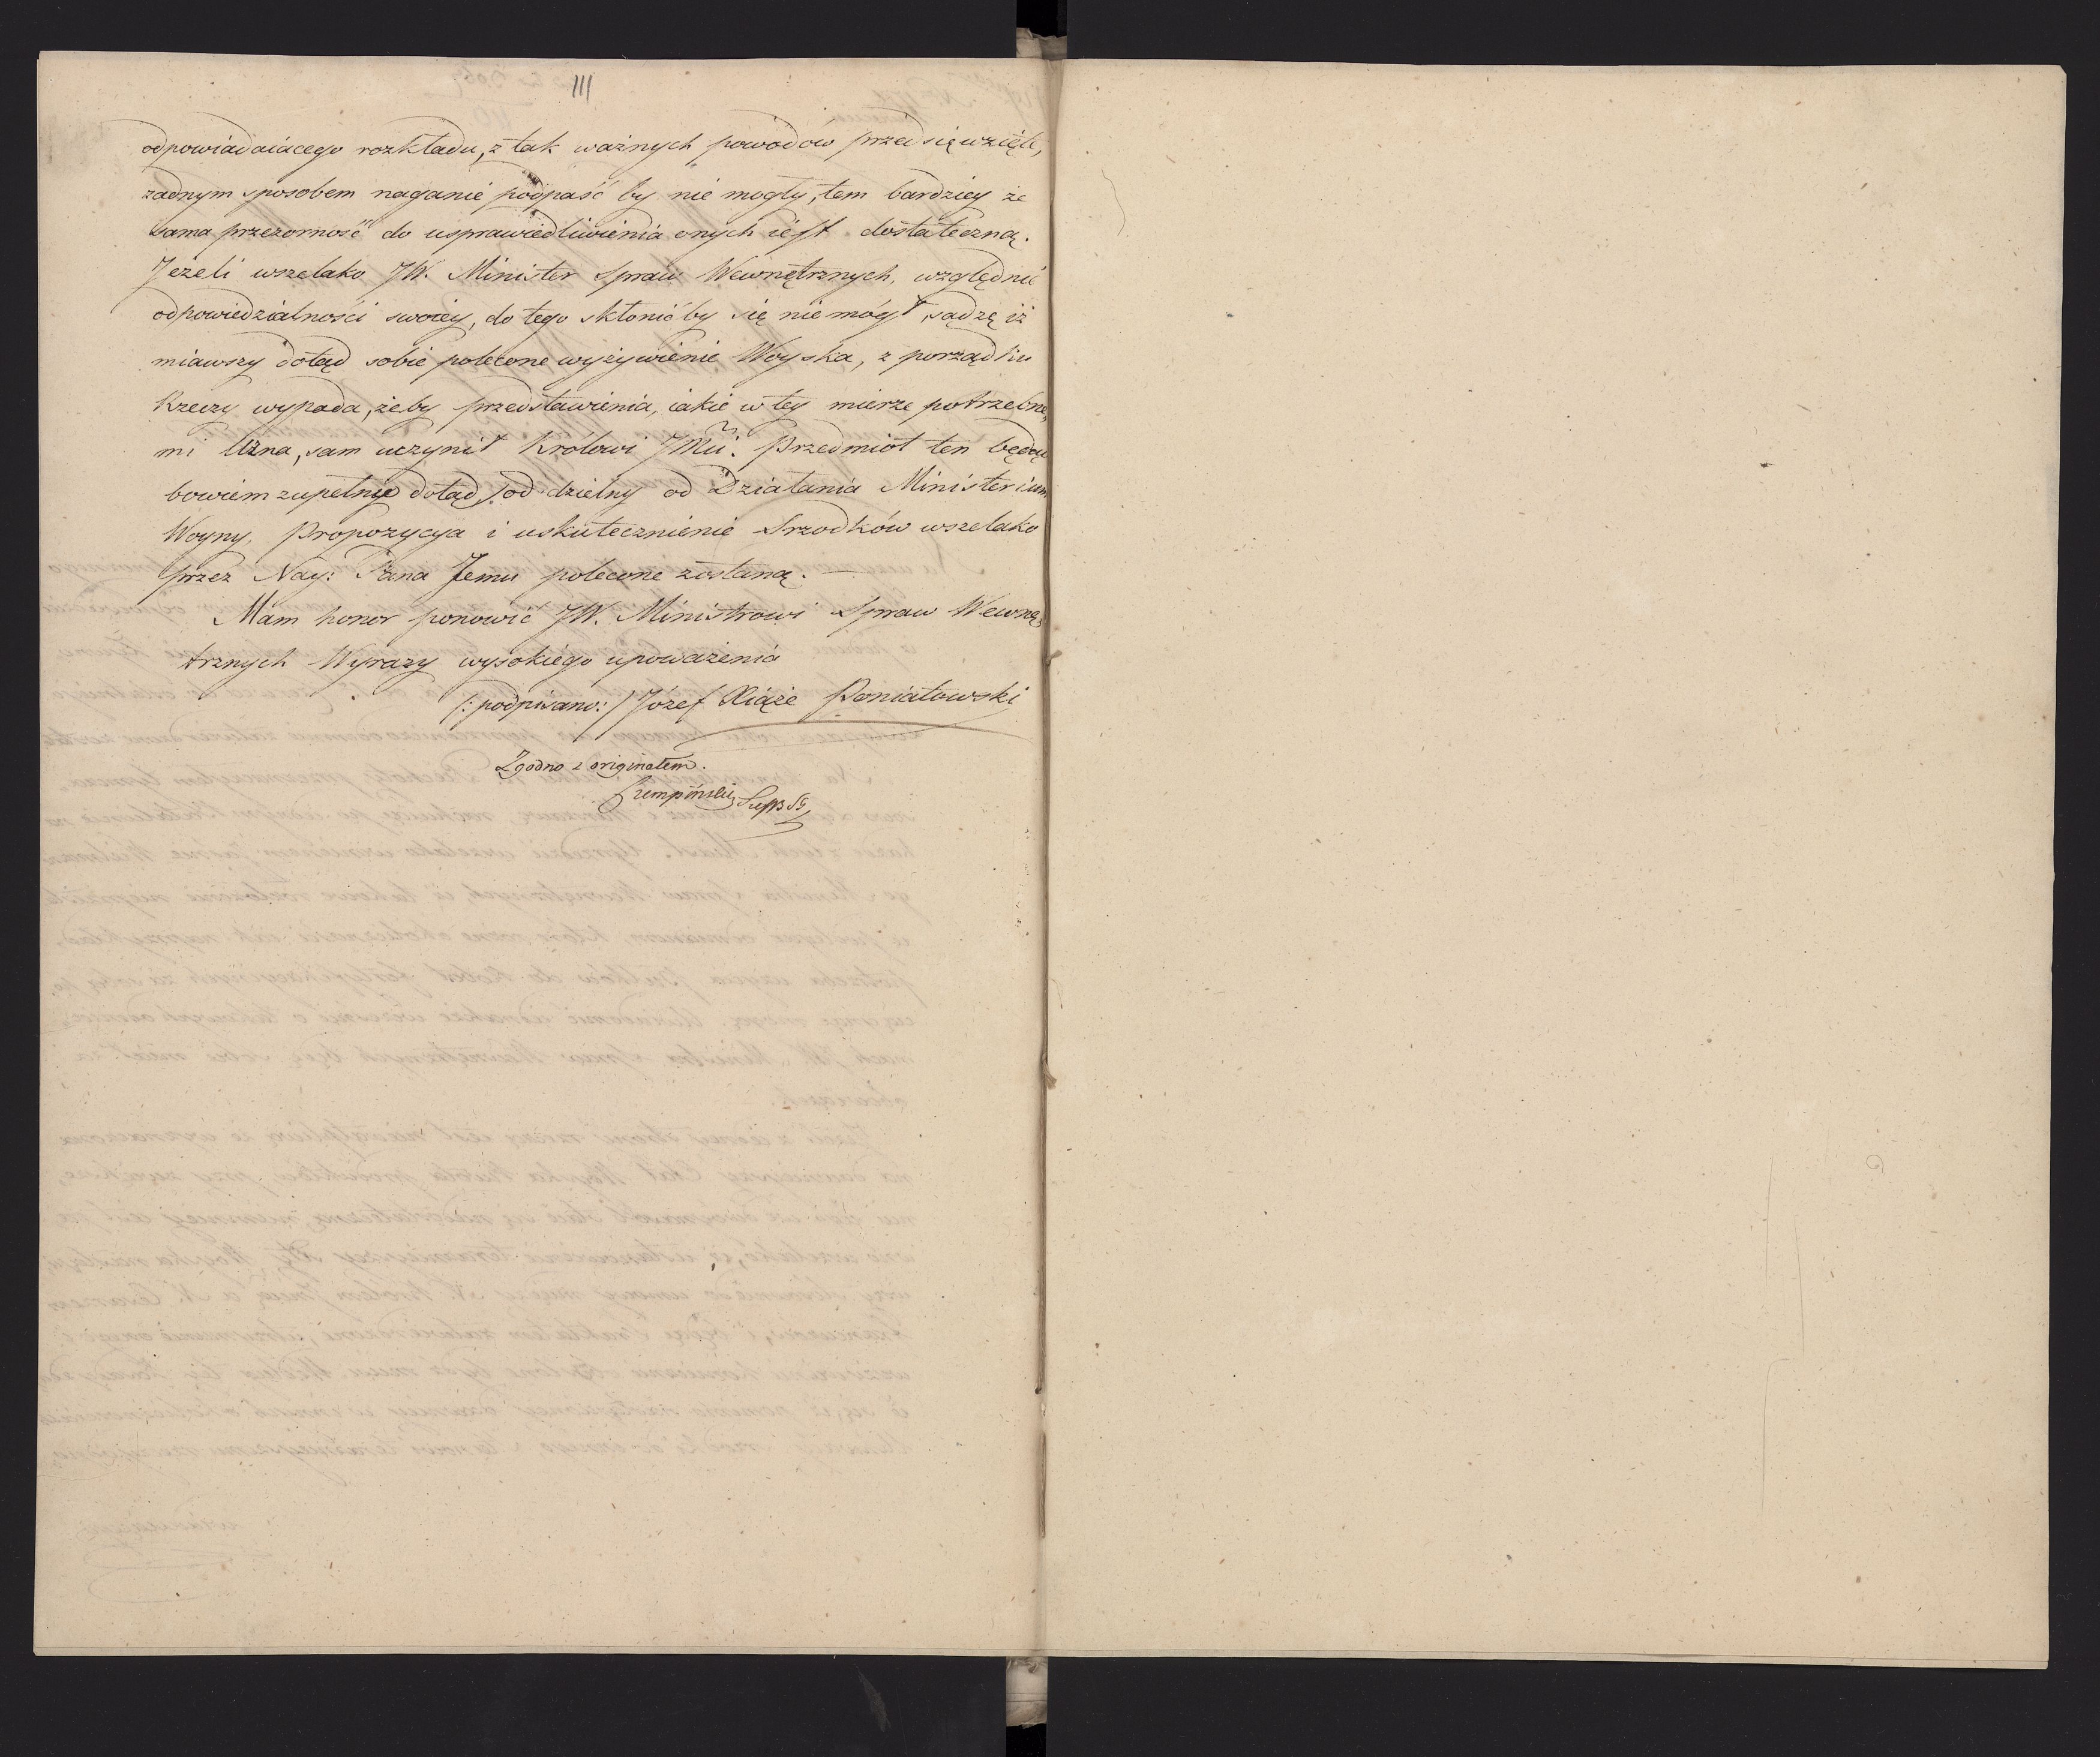 111
odpowiadaiącego rozkładu, z tak ważnych powodów przedsięwzięte,
żadnym sposobem naganie podpaść by nie mogły, tem bardziey że
sama przezorność do usprawiedliwienia onych iest dostateczną.
Jeżeli wszelako JW. Minister Spraw Wewnętrznych, względnie
odpowiedzialności swoiey, do tego skłonić by się nie mógł, sądzę iż
miawszy dotąd sobie polecone wyżywienie Woyska, z porządku
Rzeczy wypada, żeby przedstawienia, iakie w tey mierze potrzebne,
mi Uzna, sam uczynił Królowi JMći. Przedmiot ten będąc
bowiem zupełnie dotąd oddzielny od Działania Ministerium
Woyny, Propozycya i uskutecznienie Srzodków wszelako
przez Nay: Pana Jemu polecone zostaną. —
Mam honor ponowić JW. Ministrowi Spraw Wewnę,
trznych Wyrazy wysokiego upoważenia
/: podpisano: / Józef Xiąże Poniatowski
Zgodno z originałem.